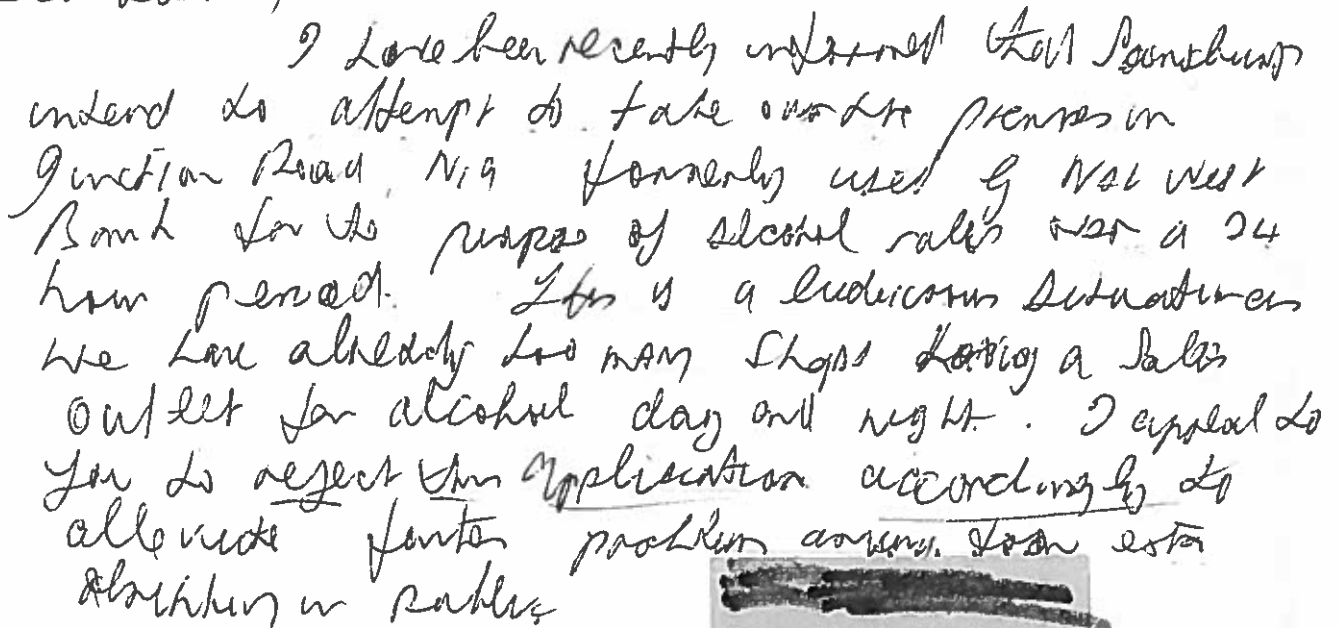 I have been recently informed that Sainsburys
intend to attempt to take over the premises in
Junction Road N19 formerly used by Nat West
Bank for the purpose of alcohol sales over a 24
hour period. This is a ludicrous situation as
we have already too many shops having a sales
outlet for alcohol day and night. I appeal to
you to reject this application accordingly to
alleviate further problems arising from extra
drinking in public